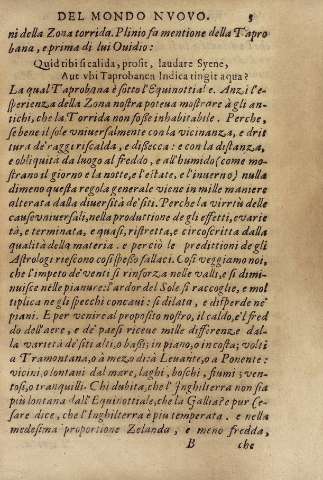 DEL MONDO NVOVO. 5
ni della Zona torrida. Plinio fa mentione della Tapro
bana, e prima di lui Ouidio:
Quid tibi si calida, prosit, laudare Syene,
Aut vbi Taprobanen Indica tingit aqua?
La qual Taprobana è sotto l'Equinottiale. Anzi l'e-
sperienza della Zona nostra poteua mostrare à gli an-
tichi, che la Torrida non fosse inhabitabile. Perche,
se bene il sole vniuersalmente con la vicinanza, e drit
tura de' raggi riscalda, e dissecca: e con la distanza,
e obliquità da luogo al freddo, e all'humido (come mo-
strano il giorno e la notte, e l'estate, e l'inuerno) nulla
dimeno questa regola generale viene in mille maniere
alterata dalla diuersità de' siti. Perche la virtù delle
cause vniuersali, nella produttione de gli effetti, e varie
tà, e terminata, e quasi, ristretta, e circoscritta dalla
qualità della materia. e perciò le predittioni de gli
Astrologi riescono così spesso fallaci. Così veggiamo noi,
che l'impeto de' venti si rinforza nelle valli, e si dimi-
nuisce nelle pianure: l'ardor del Sole si raccoglie, e mol
tiplica ne gli specchi concaui: si dilata, e disperde ne'
piani. E per venire al proposito nostro, il caldo, e'l fred
do dell'aere, e de' paesi riceue mille differenze dal-
la varietà de' siti alti, o bassi; in piano, o in costa; volti
a Tramontana, o à mezo dì: à Leuante, o a Ponente:
vicini, o lontani dal mare, laghi, boschi, fiumi; ven-
tosi, o tranquilli. Chi dubita, che l'Inghilterra non sia
più lontana dall'Equinottiale, che la Gallia? e pur Ce-
sare dice, che l'Inghilterra è piu temperata. e nella
medesima proportione Zelanda, e meno fredda,
B che